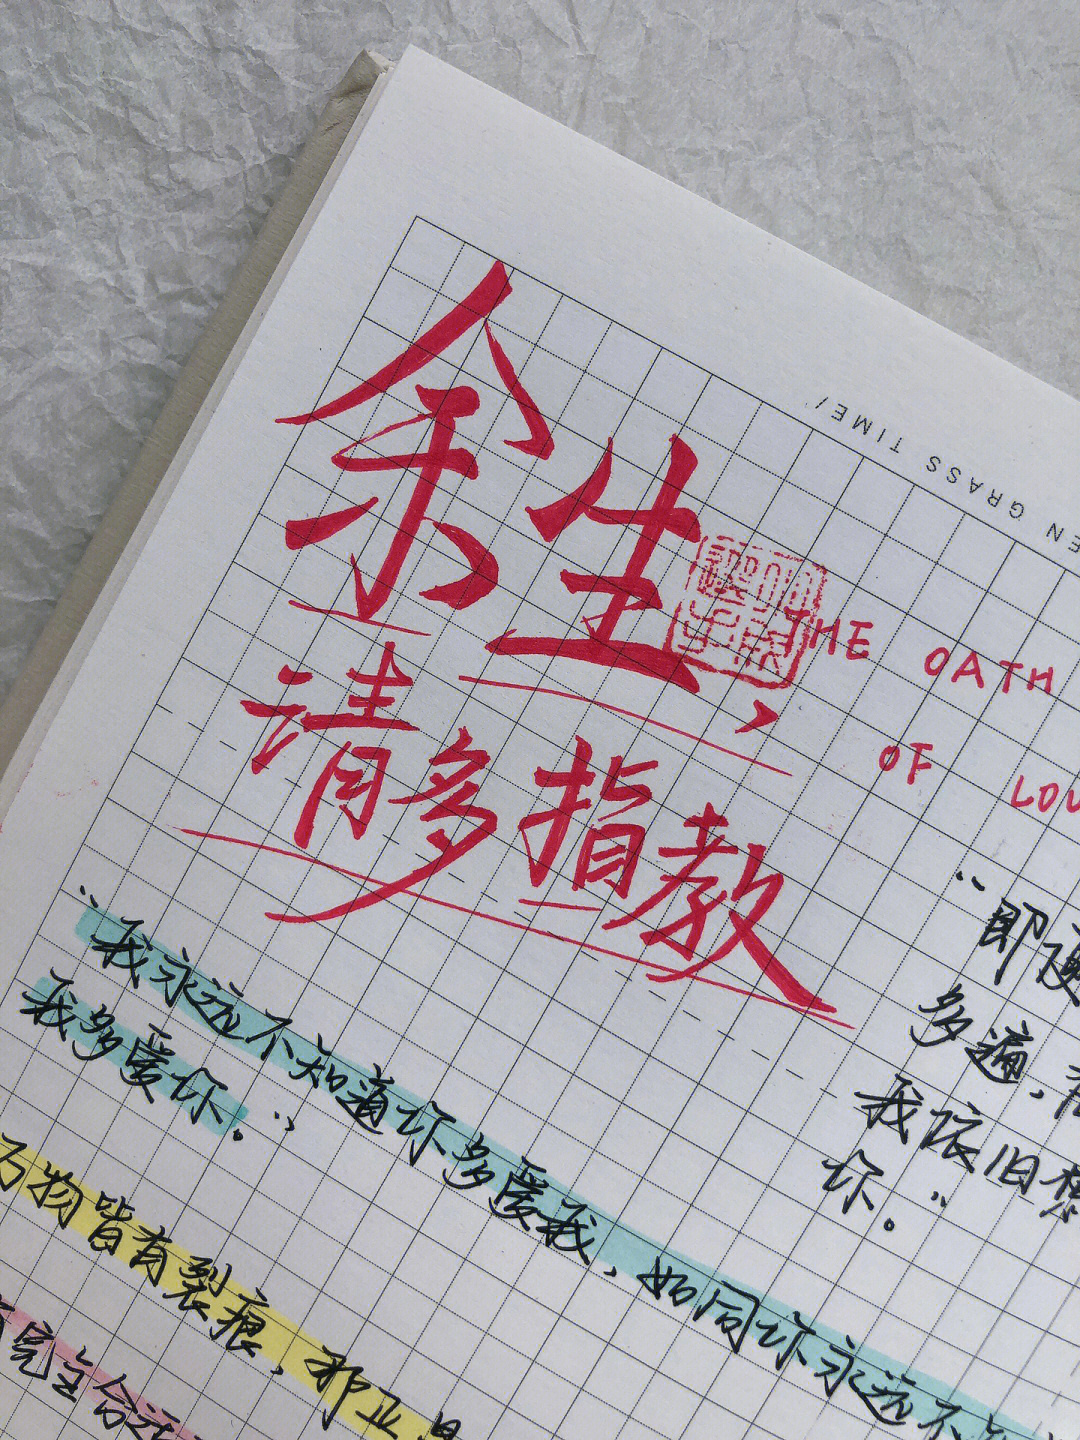 EN GRASS TIME/
余生,
THE OATH
OF LOV
请多指教
"我永远不知道你多爱我,如同你永远不知
我多爱你。"
"即便
多遍,
我依旧想
你。"
万物皆有裂痕,那正是
完全合适